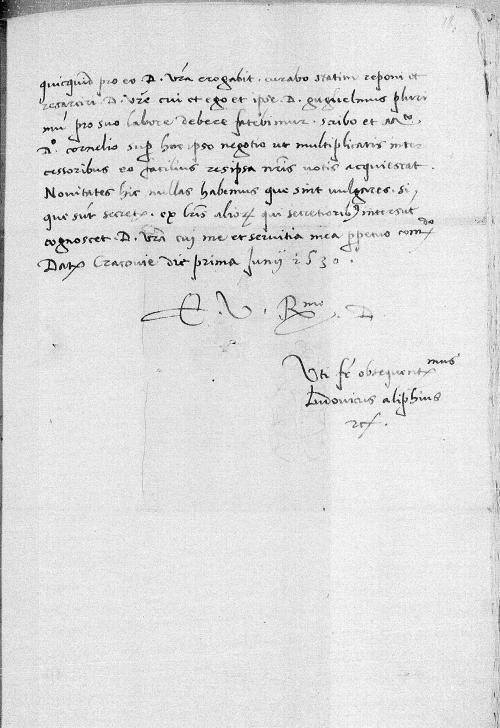 quicquid pro eo D. Vra erogabit. curabo statim reponi et
resarciri D. Vre cui et ego et ipse D. guglielmus pluri
mu pro suo labore debere fatebimur. scribo et
D. cornelio sup hoc ipso negotio ut multiplicatis inter
cessoribus eo facilius res ipsa nris votis acquiescat.
Novitates hic nullas habemus que sint vulgares. si
que sut secrete. ex lris alior qui secretiorib intersut
cognoscet D. Vra cui me et servitia mea ppetuo comdo
Dat Cracovie die prima Junij 1530.
E. V. Rmo. D
Uti fr obsequentmus
Ludovicus aliphius